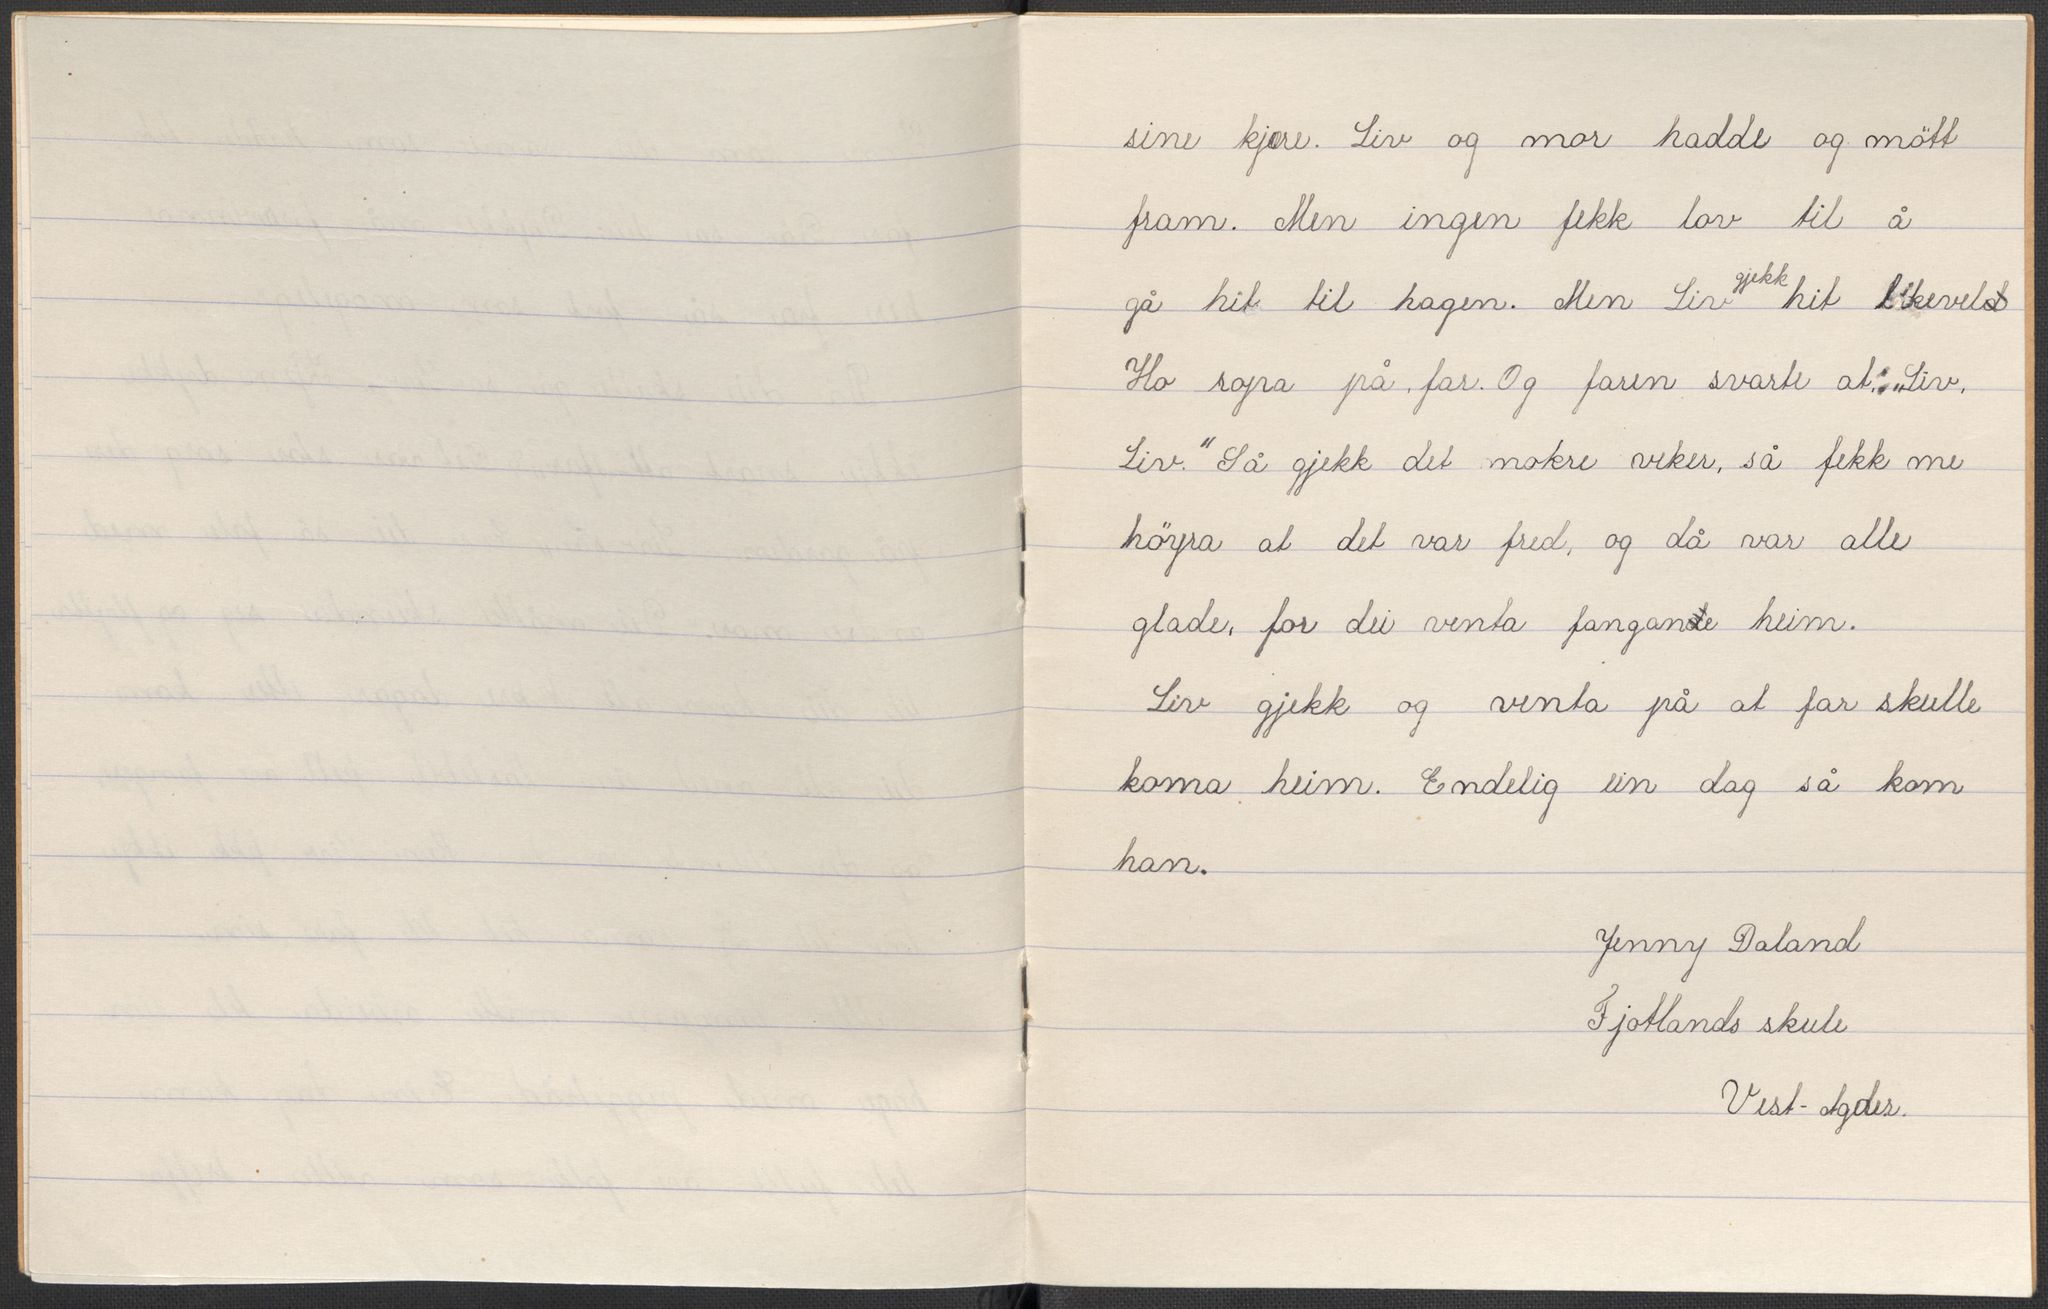 sine kjære. Liv og mor hadde og mött
fram. Men ingen fekk lov til å
gå hit til hagen. Men Liv gjekk hit likeveld
Ho ropa på far. Og faren svarte at: „Liv,
Liv." Så gjekk det nokre veker, så fekk me
höyra at det var fred, og då var alle
glade, for dei venta fangande heim.
Liv gjekk og venta på at far skulle
koma heim. Endelig ein dag så kom
han.
Jenny Daland
Fjotlands skule
Vest-Agder.